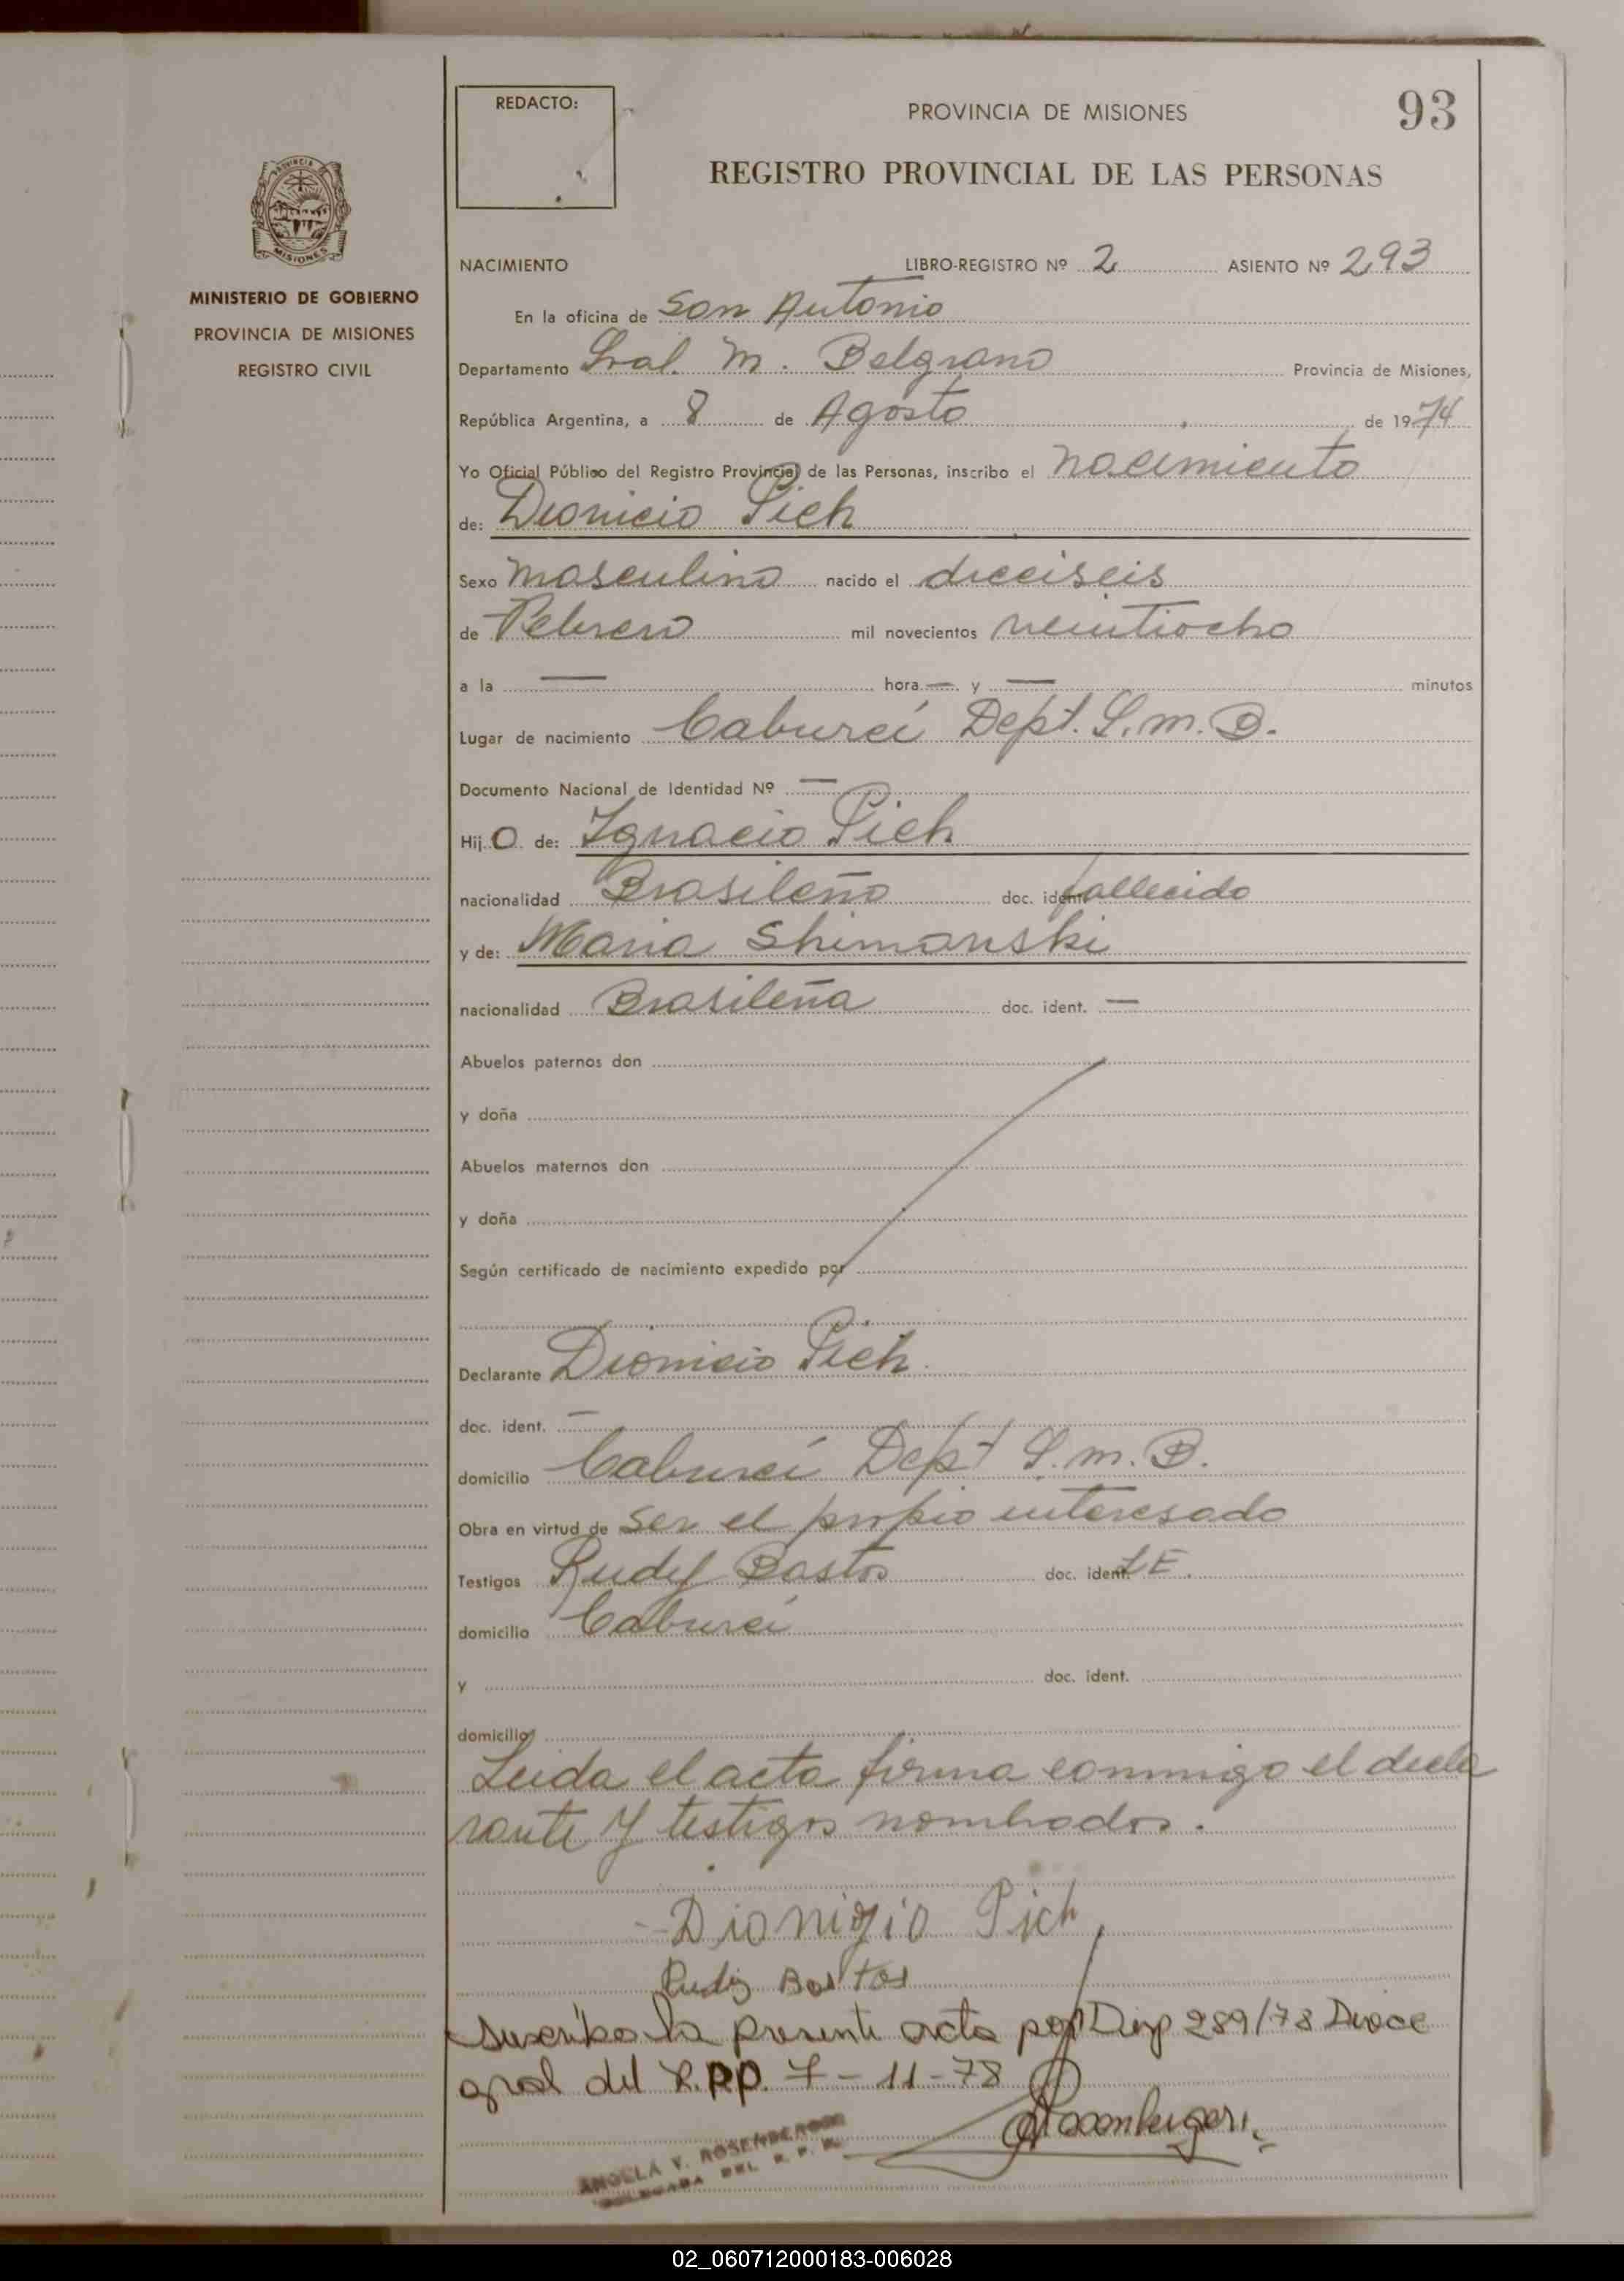 REDACTO:
PROVINCIA DE MISIONES
93
REGISTRO PROVINCIAL DE LAS PERSONAS
PROVINCIA
MISIONES
MINISTERIO DE GOBIERNO
PROVINCIA DE MISIONES
REGISTRO CIVIL
NACIMIENTO LIBRO-REGISTRO Nº 2 ASIENTO Nº 293
En la oficina de San Antonio
Departamento Gral. M. Belgrano Provincia de Misiones,
República Argentina, a 8 de Agosto de 1974
Yo Oficial Público del Registro Provincial de las Personas, inscribo el nacimiento
de: Dionicio Pich
Sexo masculino nacido el dieciseis
de Febrero mil novecientos veintiocho
a la — hora — y — minutos
Lugar de nacimiento Cabureí Dept. G. M. B.
Documento Nacional de Identidad Nº —
Hijo de: Ignacio Pich
nacionalidad Brasileño doc. ident. fallecido
y de: Maria Shimanski
nacionalidad Brasileña doc. ident. —
Abuelos paternos don
y doña
Abuelos maternos don
y doña
Según certificado de nacimiento expedido por
Declarante Dionicio Pich.
doc. ident. —
domicilio Cabureí Dept G. M. B.
Obra en virtud de ser el propio interesado
Testigos Rudy Bastos doc. ident. L E.
domicilio Cabureí
y doc. ident.
domicilio
Leida el acta firma conmigo el decla
rante y testigos nombrados.
Dionizio Pich
Rudy Bastos
Suscribo la presente acta por Disp 289/78
gral del R.P.P. 7-11-78
ANGELA V. ROSENBERGER
DELEGADA DEL R. P. P.
02_060712000183-006028